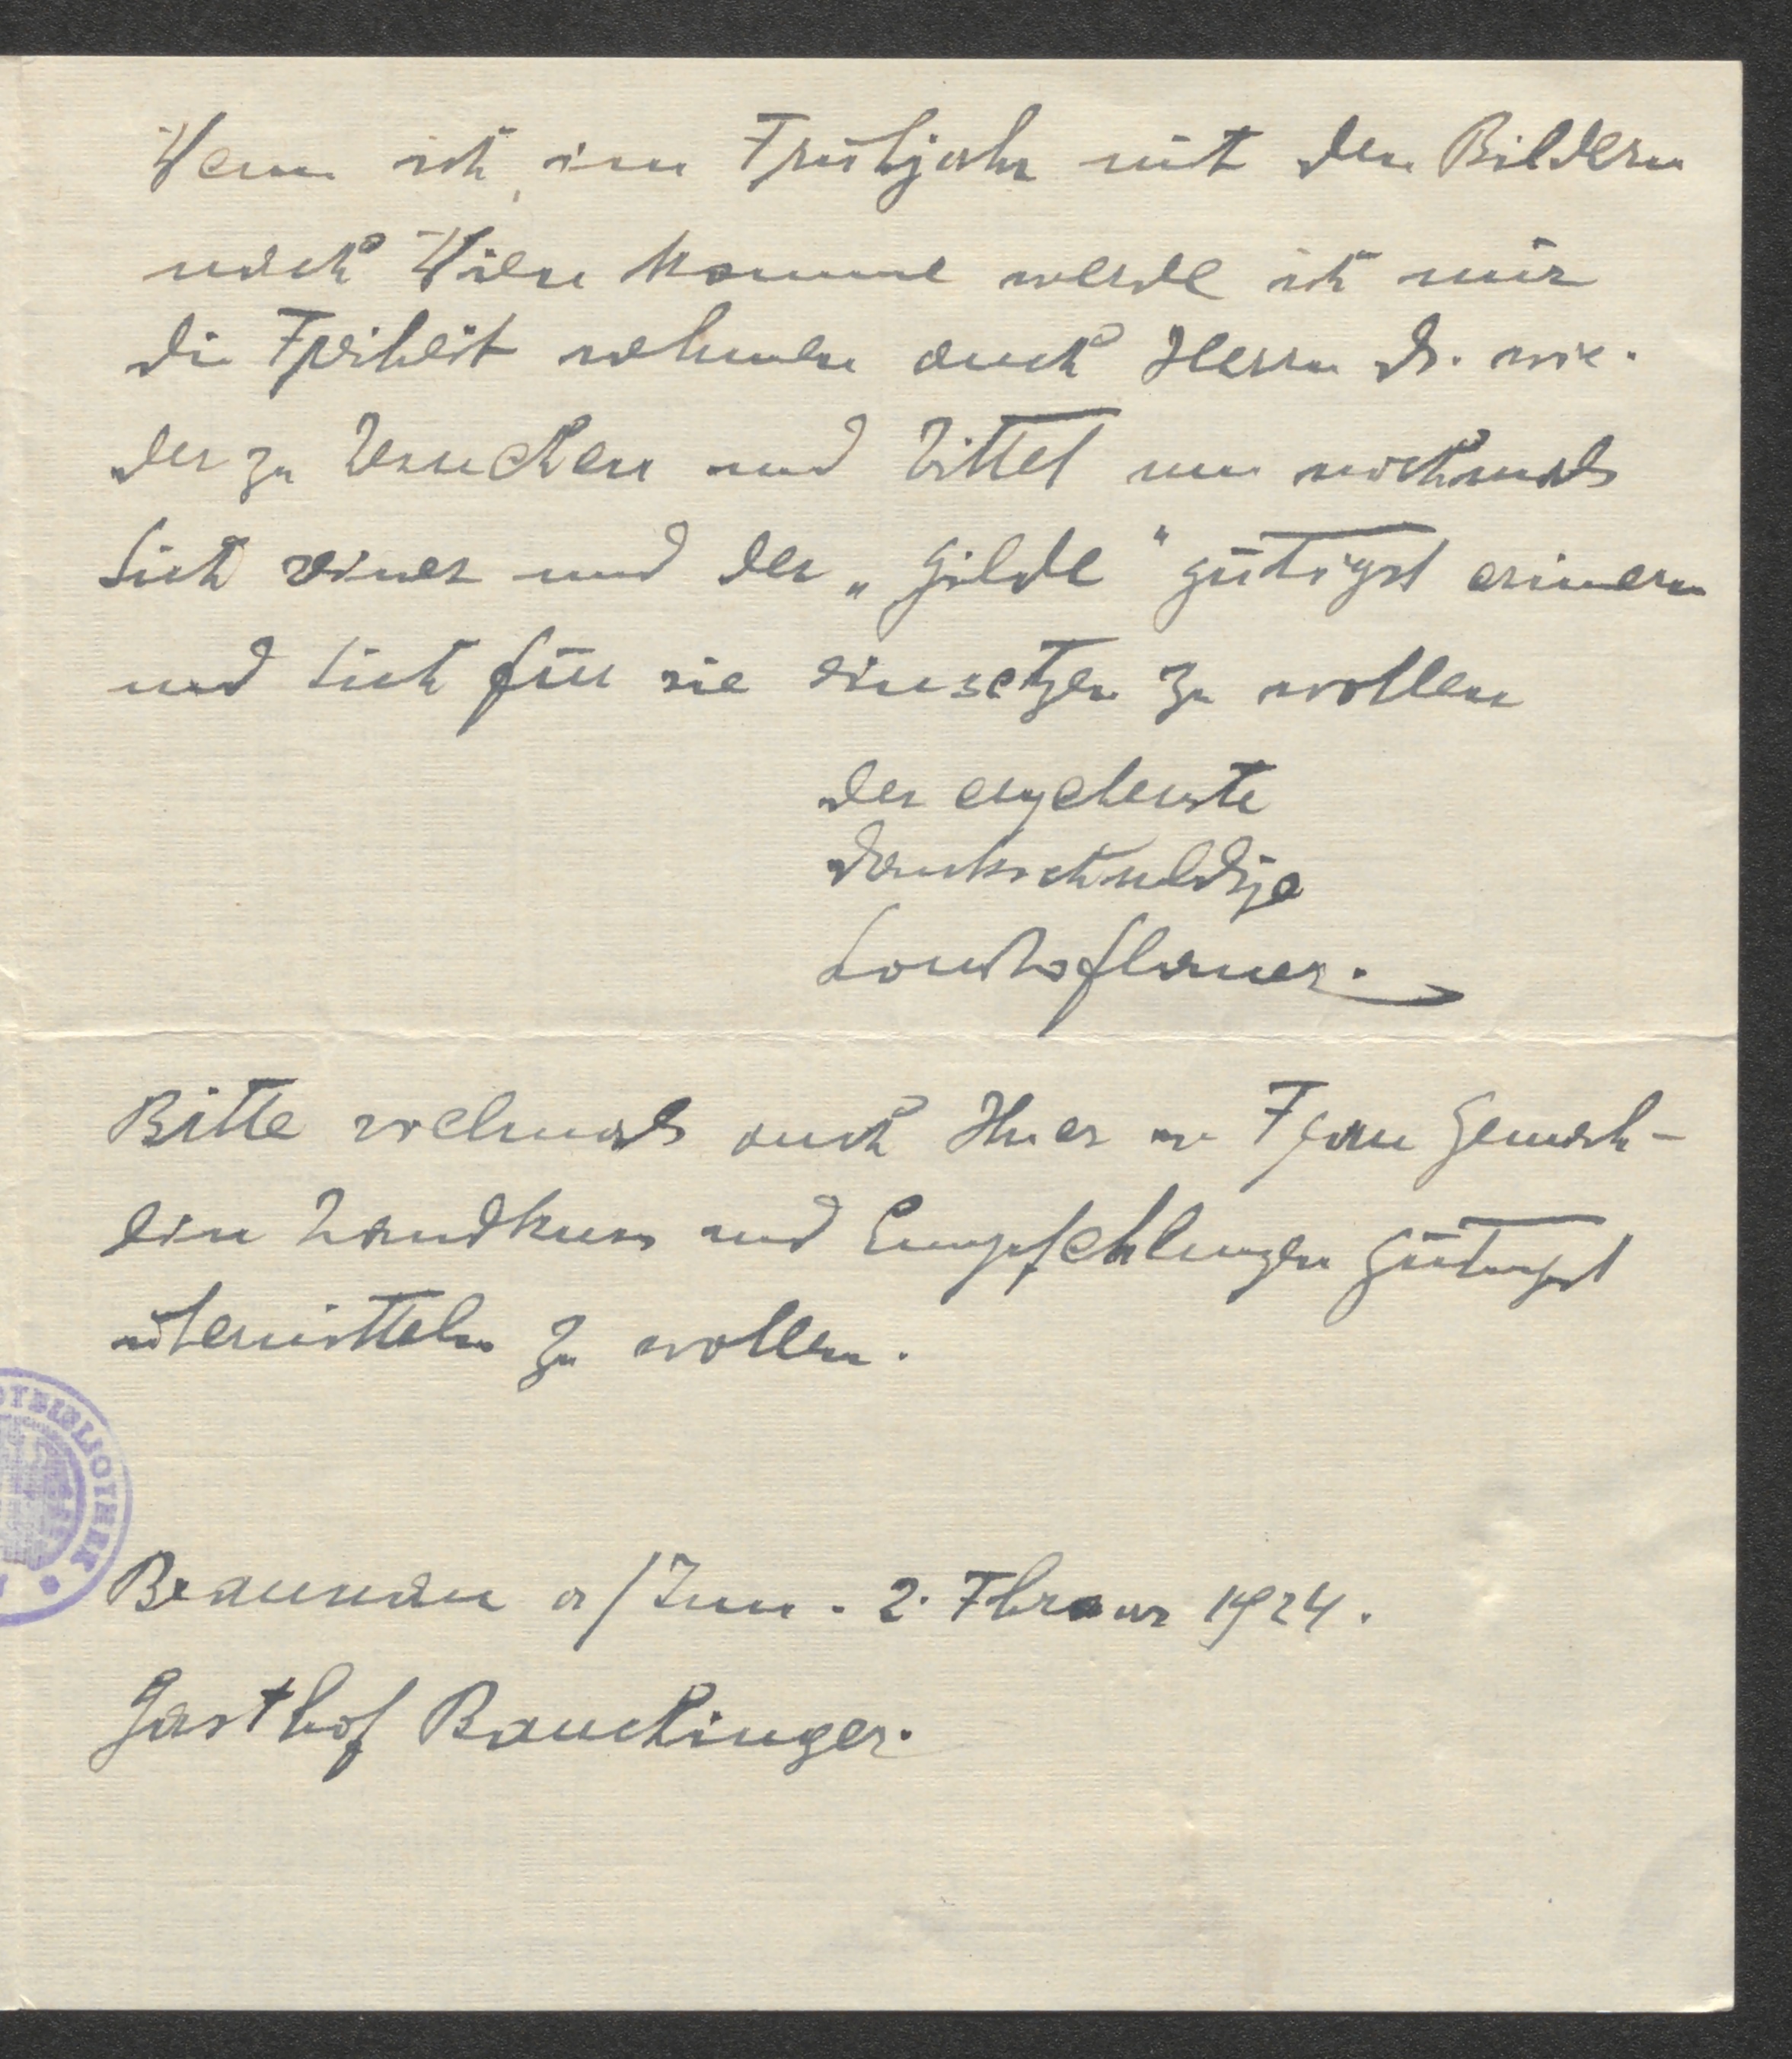 Wenn ich im Frühjahr mit den Bildern
nach Wien komme werde ich mir
die Freiheit nehmen auch Herrn Dr. wie-
der zu besuchen und bittet nun nochmals
Sich seiner und der „Gilde" gütigst erinern
und Sich für sie einsetzen zu wollen
der ergebenste
dankschuldige
Bitte vielmals auch Ihrer Frau Gemah-
lin Handkuss und Empfehlungen gütigst
übermitteln zu wollen.
BIBLIOTHEK
Braunau a/Inn. 2. Februar 1924.
Gasthof Bauchinger.